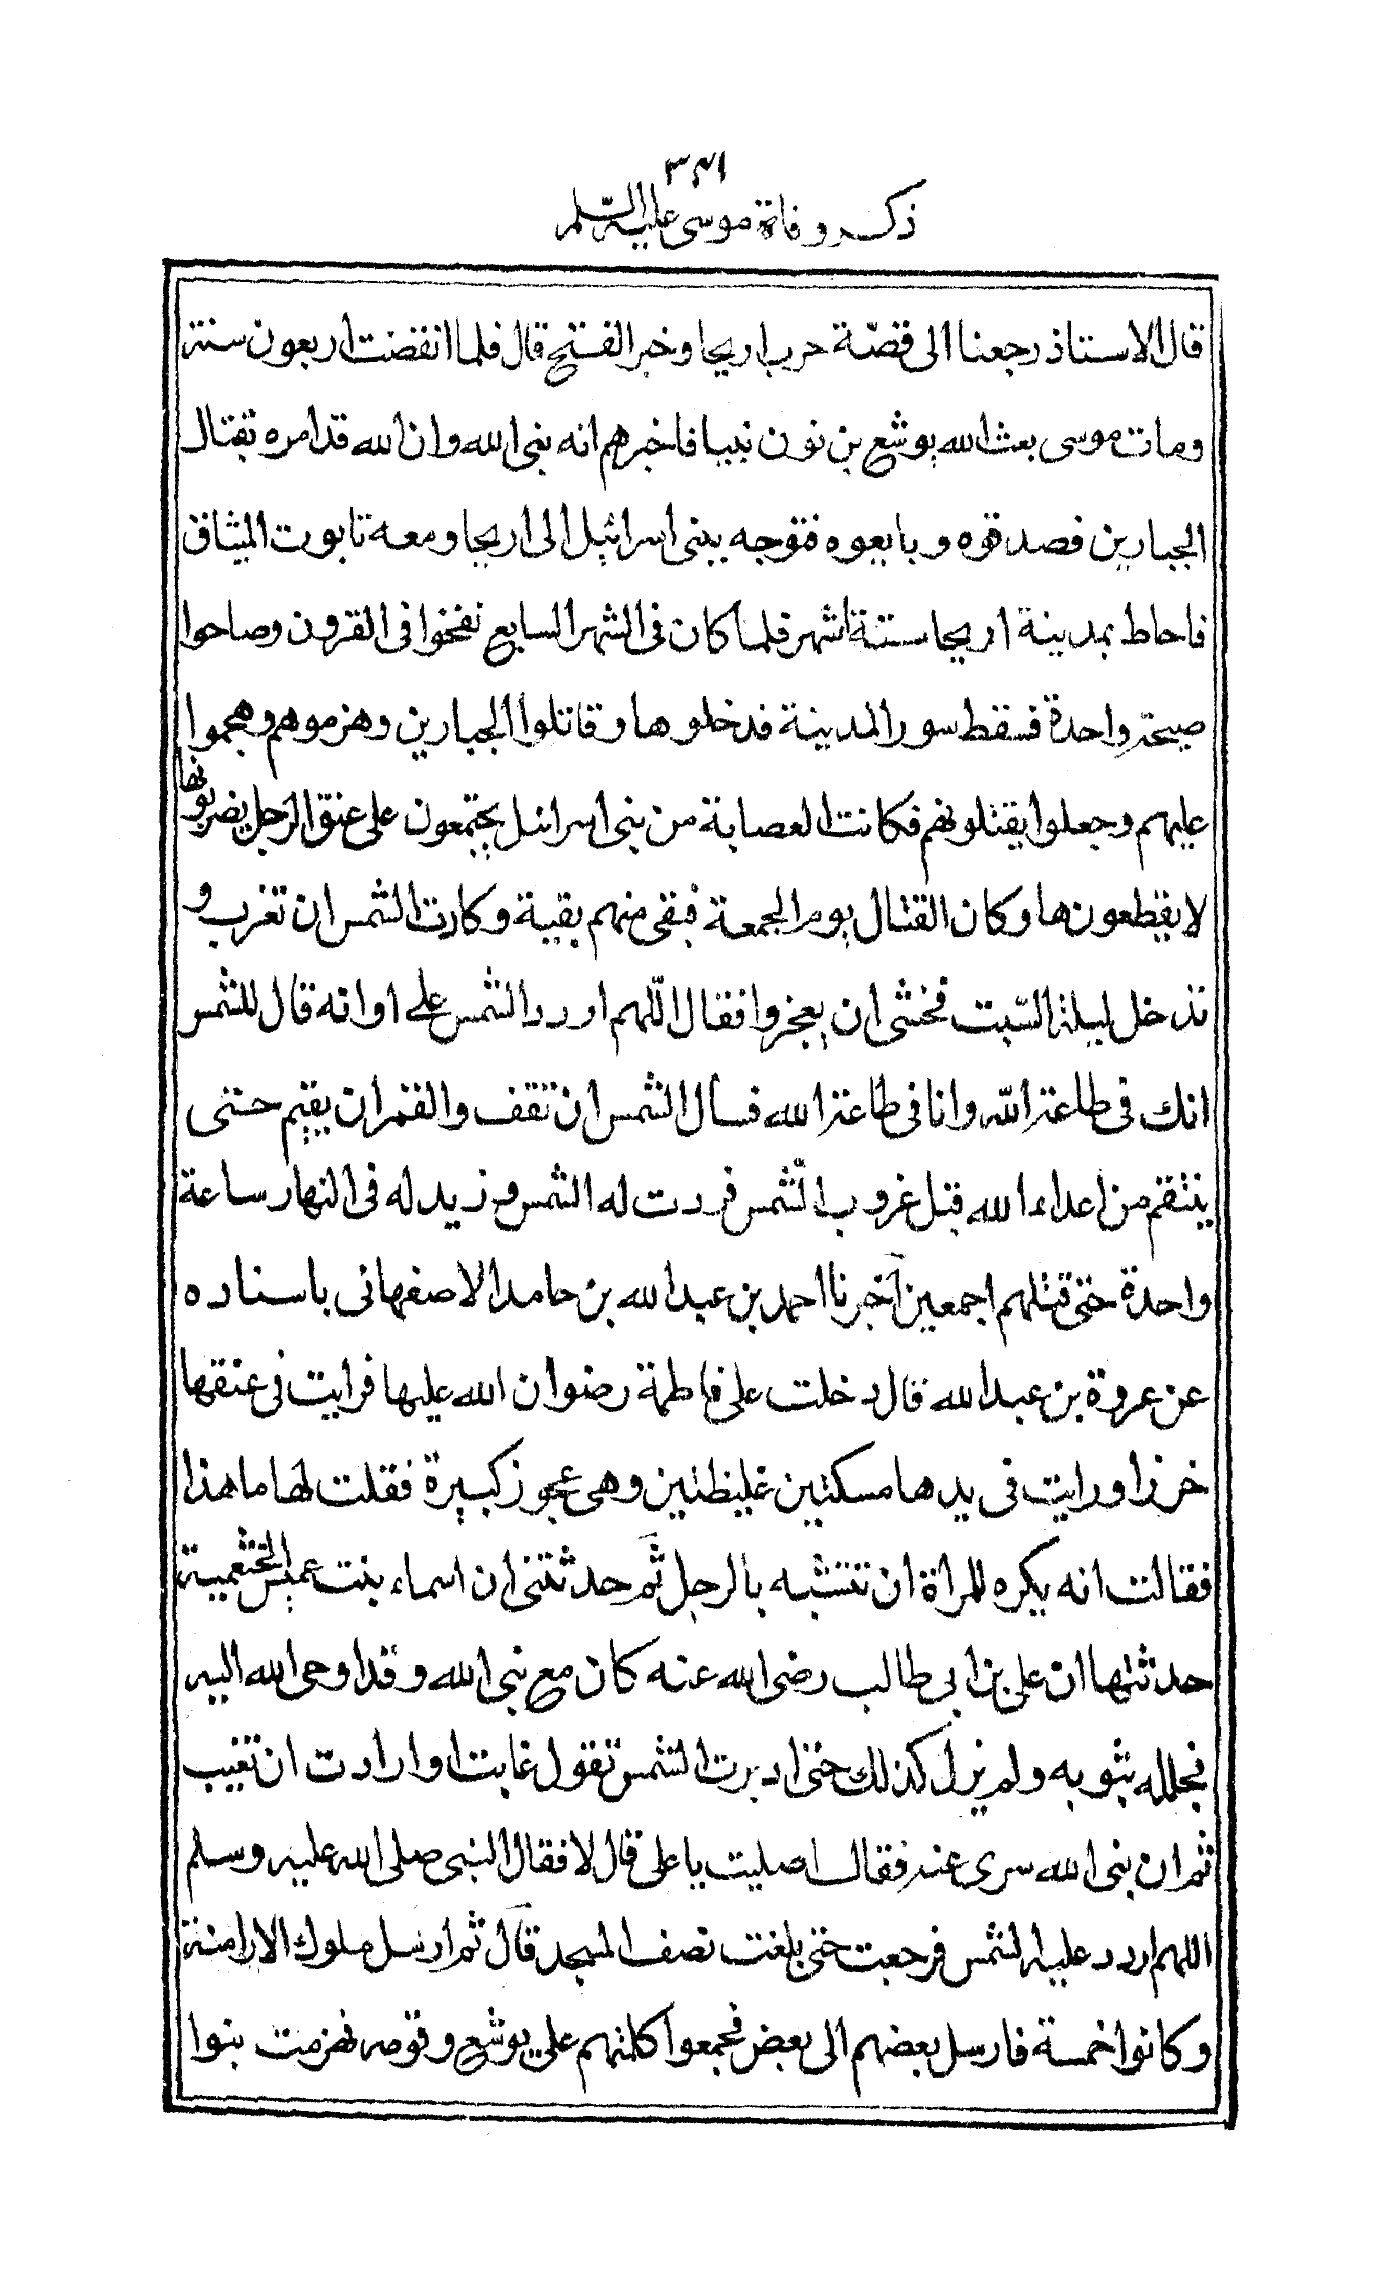 ٣٤١
ذكر وفاة موسى عليه السّلم
قال الاستاذ رجعنا الى قصّة حرب اريحا وخبر الفتح قال فلما انقضت اربعون سنة
ومات موسى بعث الله يوشع بن نون نبيا فاخبرهم انه نبى الله وان الله قد امره بقتال
الجبارين فصدقوه وبايعوه فتوجه ببنى اسرائيل الى اريحا ومعه تابوت الميثاق
فاحاط بمدينة اريحا ستة اشهر فلما كان فى الشهر السابع نفخوا فى القرون وصاحوا
صيحة واحدة فسقط سور المدينة فدخلوها وقاتلوا الجبارين وهزموهم وهجموا
عليهم وجعلوا يقتلونهم فكانت العصابة من بنى اسرائيل يجتمعون على عنق الرجل يضربونها
لا يقطعونها وكان القتال يوم الجمعة فبقى منهم بقية وكادت الشمس ان تغرب و
تدخل ليلة السّبت فخشى ان يعجزوا فقال اللّهم اردد الشمس على او انه قال للشمس
انك فى طاعة اللّه وانا فى طاعة الله فسأل الشمس ان تقف والقمر ان يقيم حتى
ينتقم من اعداء الله قبل غروب الشّمس فردت له الشمس وزيد له فى النهار ساعة
واحدة حتى قتلهم اجمعين اخبرنا احمد بن عبد الله بن حامد الاصفهانى باسناده
عن عروة بن عبد الله قال دخلت على فاطمة رضوان الله عليها فرايت فى عنقها
خرزا ورايت فى يدها مسكتين غليظتين وهى عجوز كبيرة فقلت لها ما هذا
فقالت انه يكره للمراة ان تتشبه بالرجل ثم حدثتنى ان اسماء بنت عميس الخثعمية
حدثتها ان على بن ابى طالب رضى الله عنه كان مع نبى الله وقد اوحى الله اليه
فجلله بثوبه ولم يزل كذلك حتى ادبرت الشمس تقول غابت او ارادت ان تغيب
ثم ان نبى الله سرى عنه فقال اصليت يا على قال لا فقال النبى صلى الله عليه وسلم
اللهم اردد عليه الشمس فرجعت حتى بلغت نصف المسجد قال ثم ارسل ملوك الارامنة
وكانوا خمسة فارسل بعضهم الى بعض فجمعوا كلمتهم على يوشع وقومه فهزمت بنوا